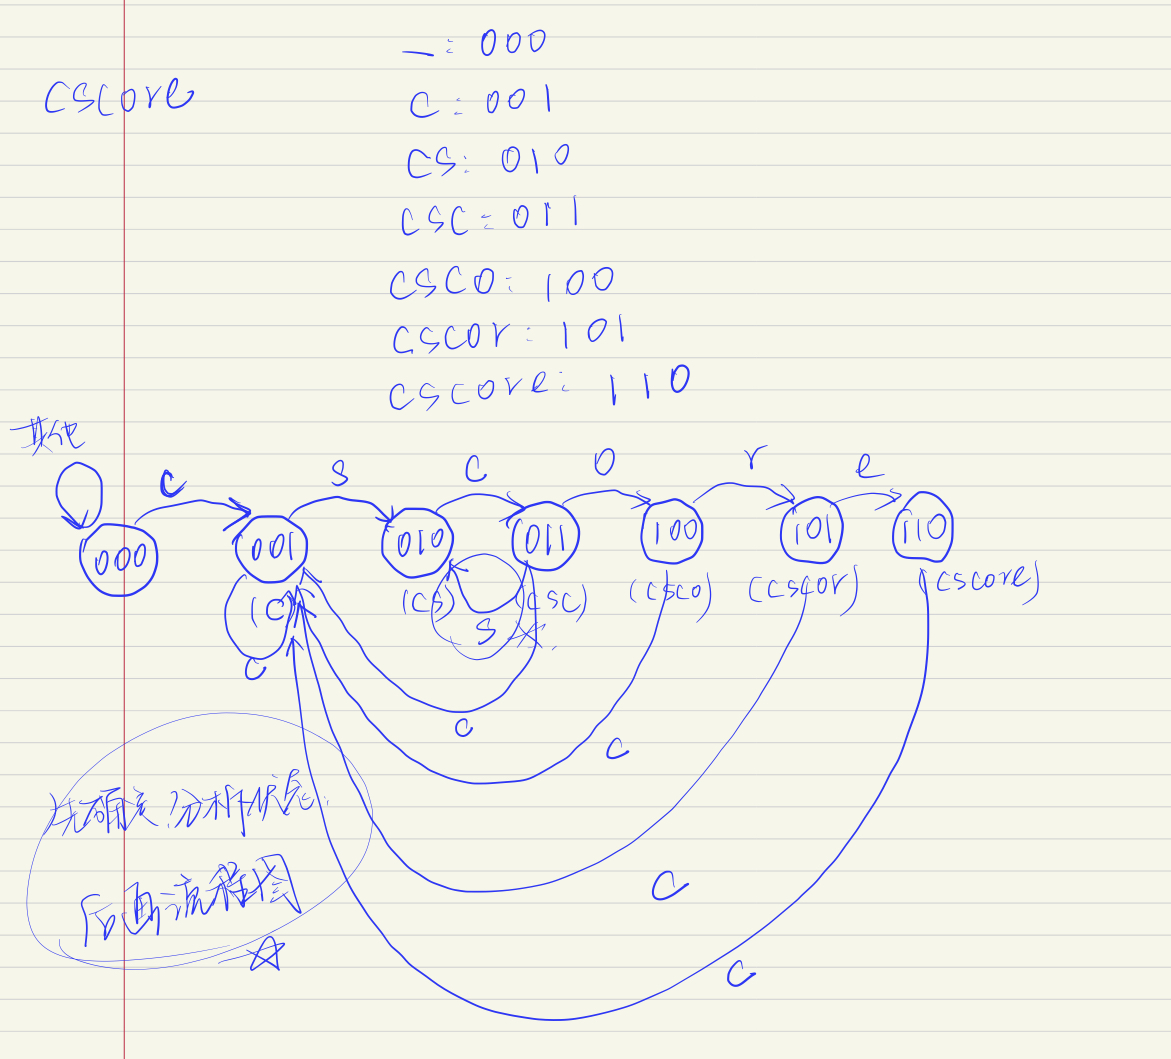 —: 000
cscore
C: 001
CS: 010
CSC: 011
CSCO: 100
cscor: 101
cscore: 110
其他
C
S
C
O
r
e
000
001
010
011
100
101
110
(C)
(CS)
(CSC)
(CSCO)
(cscor)
(cscore)
S
C
C
C
C
C
先确定/分析状态
后画流程图